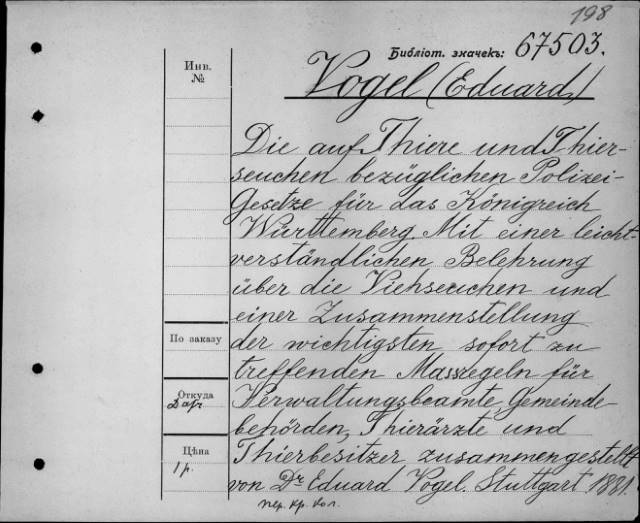 198
Библіот. значекъ: 67503.
Инв.
№
Vogel (Eduard)
Die auf Thiere und Thier-
seuchen bezüglichen Polizei-
Gesetze für das Königreich
Württemberg. Mit einer leicht-
verständlichen Belehrung
über die Viehseuchen und
einer Zusammenstellung
По заказу
der wichtigsten sofort zu
treffenden Massregeln für
Откуда
Даръ
Verwaltungsbeamte, Gemeinde-
behörden, Thierärzte und
Цѣна
1 р.
Thierbesitzer zusammengestellt
von Dr Eduard Vogel. Stuttgart 1881.
пер. кр. кол.